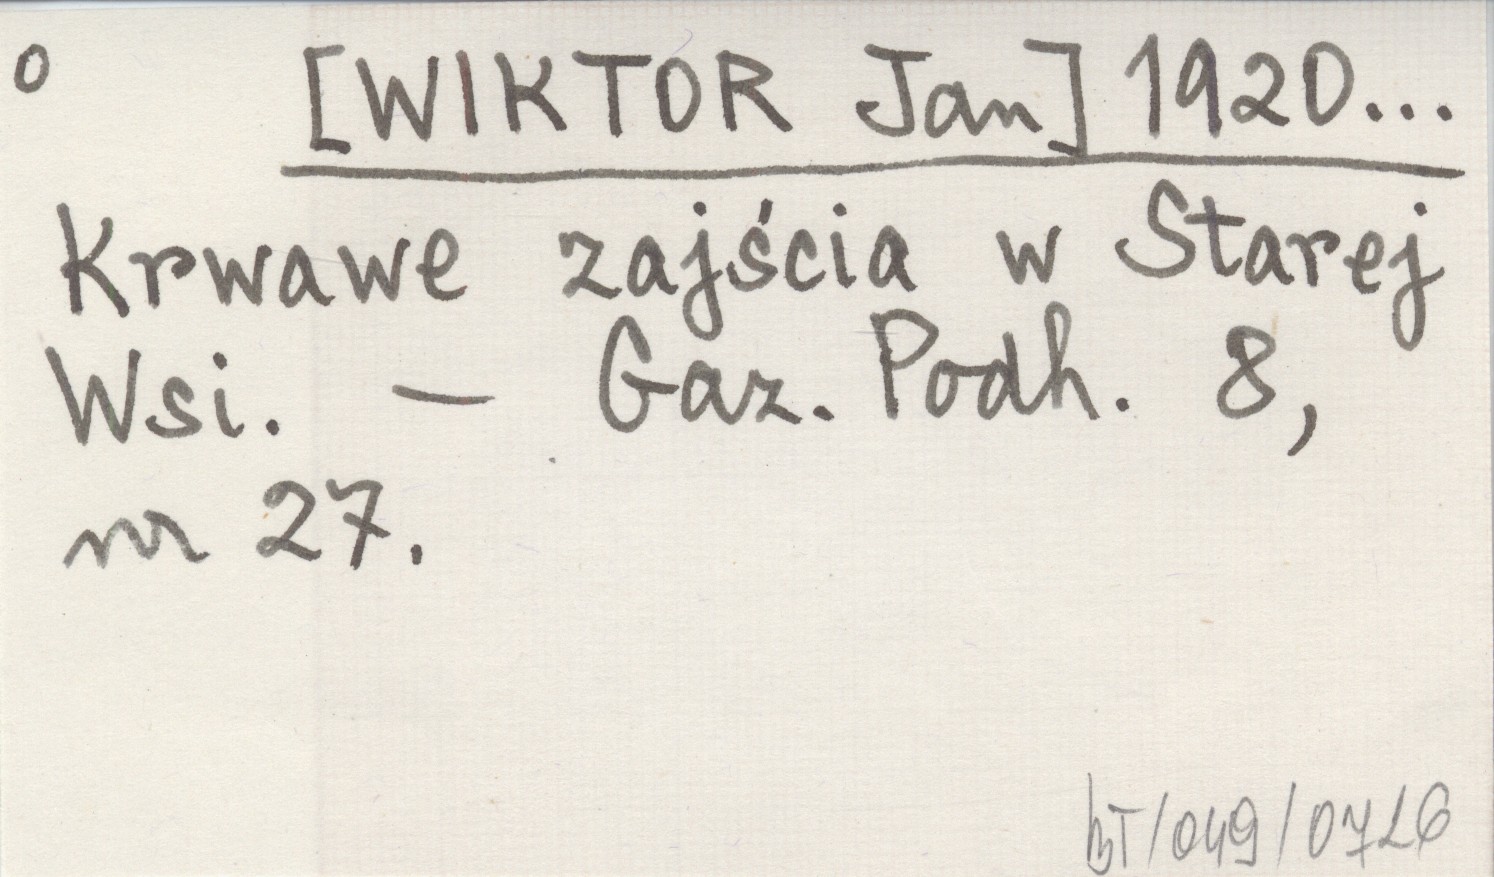 o [WIKTOR Jan] 1920...
Krwawe zajścia w Starej
Wsi. — Gaz. Podh. 8,
nr 27.
BT/049/0726